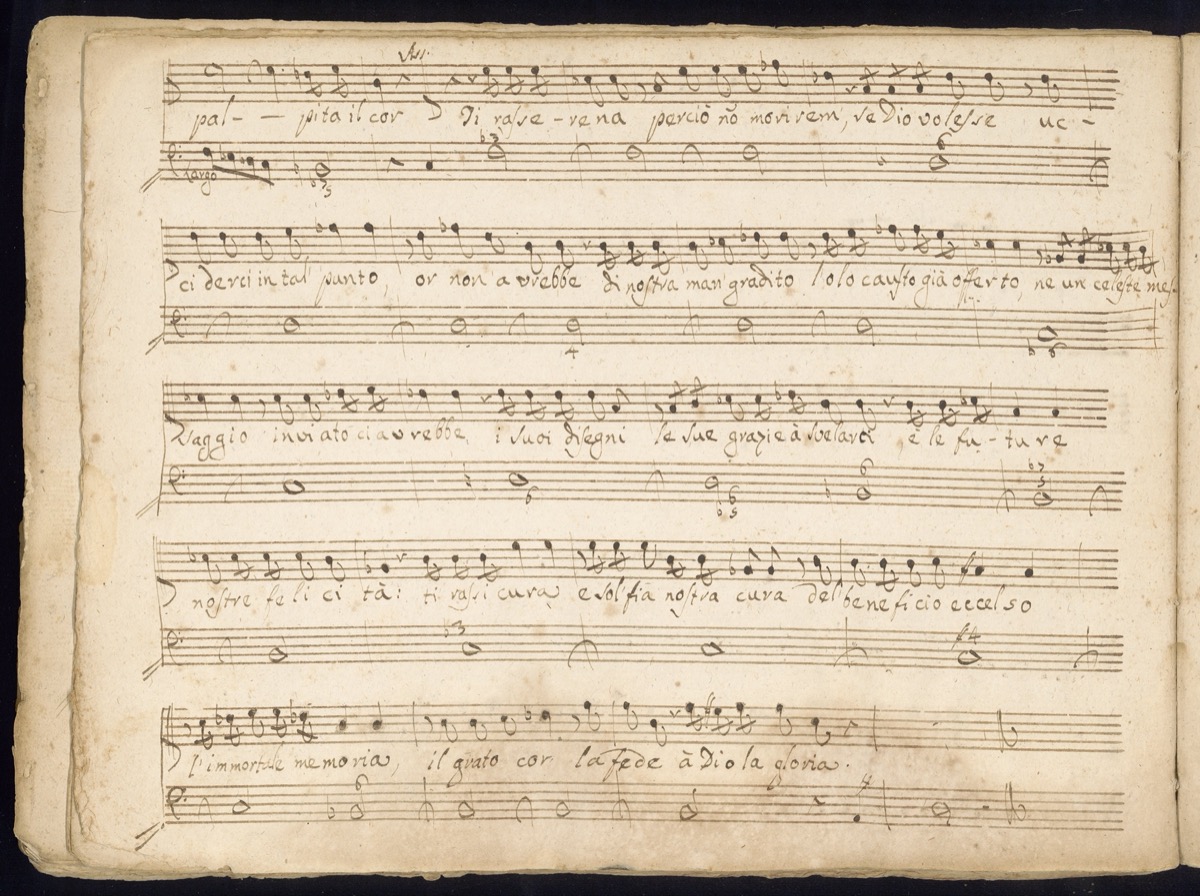 pal - - pita il cor Ti rasse - rena perciò nõ morirem, se Dio volesse uc -
Largo
ci derci in tal punto, or non a vrebbe di nostra man gradito l'olo causto già offerto, ne un celeste mes-
saggio inviato ci av rebbe, i suoi disegni le sue grazie à svelarci e le fu - tu re
nostre fe li ci tà: ti rassi cura e sol fia nostra cura del beneficio eccelso
l'immortale memoria, il grato cor la fede à Dio la gloria.